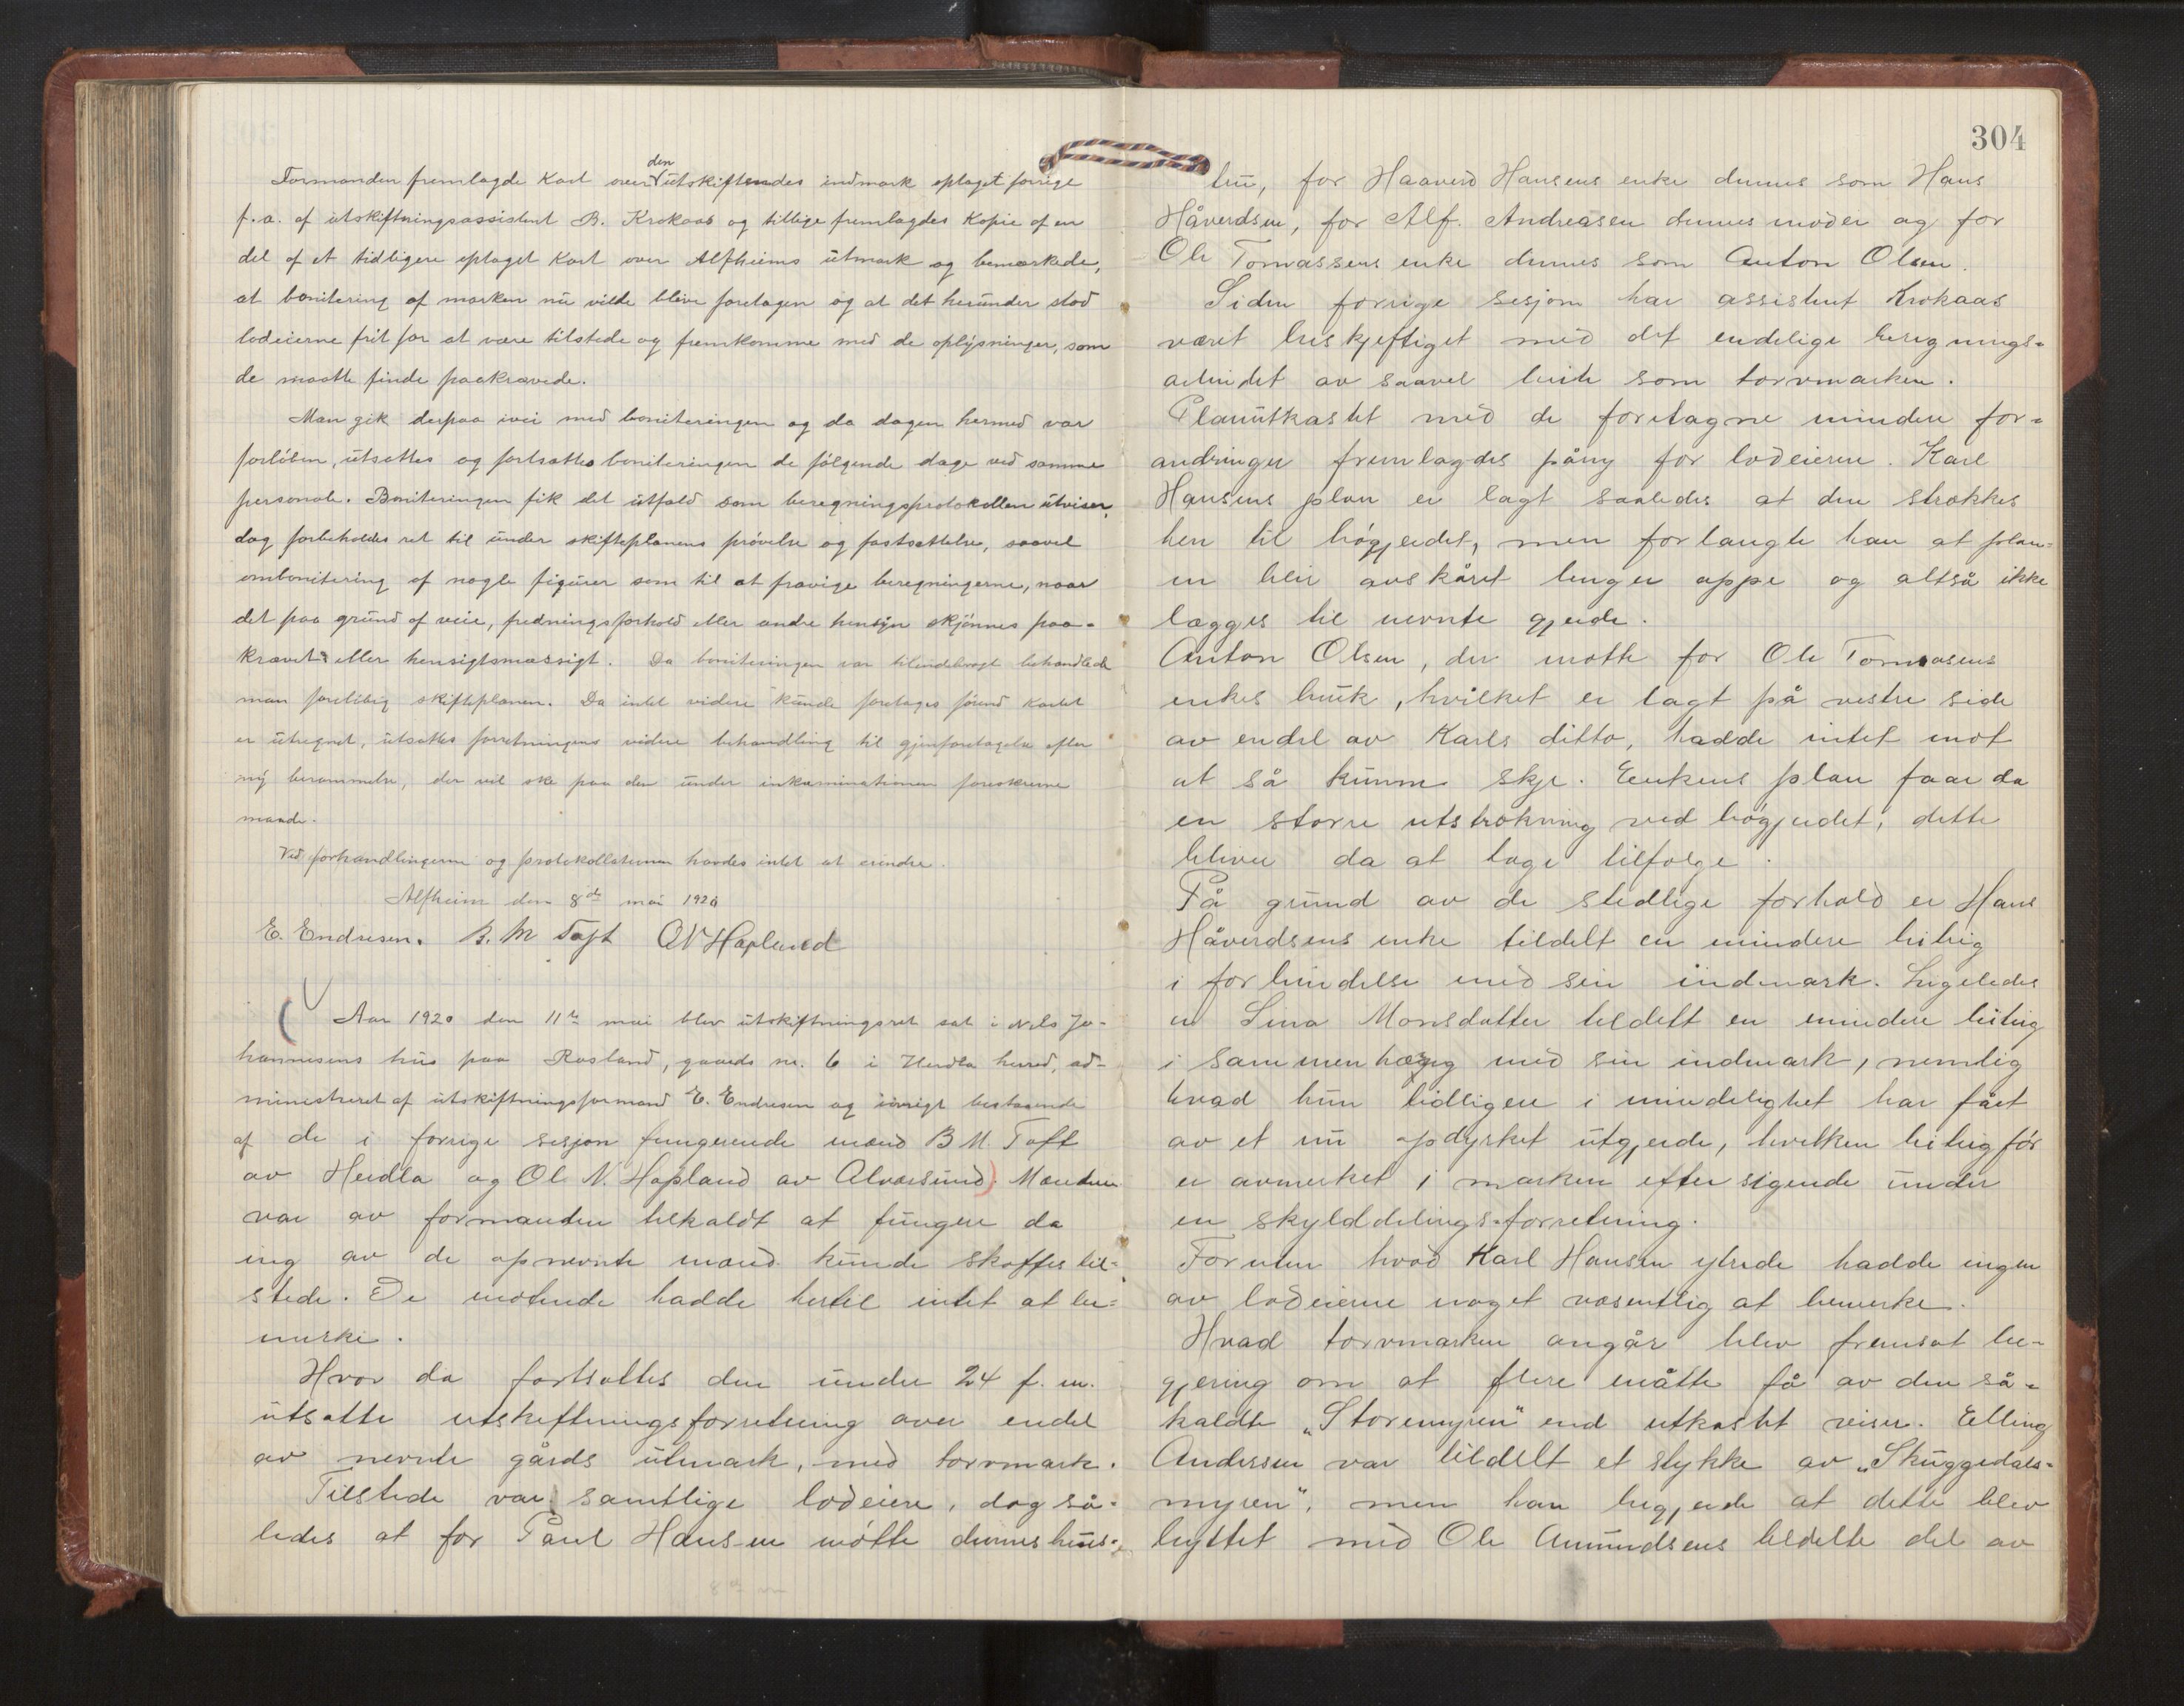 den
Formanden fremlagde Kart over utskiftendes indmark optaget forrige
f.a. af utskiftningsassistent B. Krokaas og tillige fremlagdes Kopie af en
del af et tidligere optaget Kart over Alfheims utmark og bemærkede,
at bonitering af marken nu vilde blive foretagen og at det herunder stod
lodeierne frit for at være tilstede og fremkomme med de oplysninger, som
de maatte finde paakrævede.
Man gik derpaa ivei med boniteringen og da dagen hermed var
forløben, utsattes og fortsattes boniteringen de følgende dage ved samme
personale. Boniteringen fik det utfald som beregningsprotokollen utviser,
dog forbeholdes ret til under skifteplanens prøvelse og fastsættelse, saavel
ombonitering af nogle figurer som til at fravige beregningerne, naar
det paa grund af veie, fredningsforhold eller andre hensyn skjønnes paa-
krævet eller hensigtsmæssigt. Da boniteringen var tilendebragt behandlede
man foreløbig skifteplanen. Da intet videre kunde foretages førend kartet
er utregnet, utsattes forretningens videre behandling til gjenforetagelse efter
ny berammelse, der vil ske paa den under inkaminationen foreskrevne
maade.
Ved forhandlingerne og protokollationen havdes intet at erindre.
Alfheim den 8de mai 1920
E. Endresen. B. M Toft O N Hopland
Aar 1920 den 11te mai blev utskiftningsret sat i Nils Jo-
hannesens hus paa Rosland, gaards nr. 6 i Herdla herred, ad-
ministreret af utskiftningsformand E. Endresen og iøvrigt bestaaende
af de i forrige sesjon fungerende mænd B M. Toft
av Herdla og Ol. N. Hopland av Alversund. Mændene
var av formanden tilkaldt at fungere da
ing av de opnevnte mænd kunde skaffes til=
stede. De møtende hadde hertil intet at be=
merke.
Hvor da fortsattes den under 24 f. m.
utsatte utskiftningsforretning over endel
av nevnte gårds utmark, med torvmark.
Tilstede var samtlige lodeiere, dog så=
ledes at for Paul Hansen møtte dennes hus=
304
tru, for Haaverd Hansens enke dennes søn Hans
Håverdsen, for Alf. Andreasen dennes moder og for
Ole Tomassens enke dennes søn Anton Olsen.
Siden forrige sesjon har assistent Krokaas
været beskjeftiget med det endelige beregnings=
arbeidet av saavel beite som torvmarken.
Planutkastet med de foretagne mindre for=
andringer fremlagdes påny for lodeierne. Karl
Hansens plan er lagt saaledes at den strækkes
hen til bøgjerdet, men forlangte han at plan=
en blir avskåret lenger oppe og altså ikke
lægges til nevnte gjerde.
Anton Olsen, der møtte for Ole Tomasens
enkes bruk, hvilket er lagt på vestre side
av endel av Karls ditto, hadde intet mot
at så kunne skje. Enkens plan faar da
en større utstrækning ved bøgjerdet, dette
bliver da at tage tilfølge.
På grund av de stedlige forhold er Hans
Håverdsens enke tildelt en mindre beiteig
i forbindelse med sin indmark. Ligeledes
er Sina Monsdatter tildelt en mindre beiteig
i sammenhæng med sin indmark, nemlig
hvad hun tidligere i mindelighet har fået
av et nu opdyrket utgjerde, hvilken beiteig før
er avmerket i marken efter sigende under
en skylddelings-forretning.
Foruten hvad Karl Hansen ytrede hadde ingen
av lodeierne noget væsentlig at bemerke.
Hvad torvmarken angår blev fremsat be-
gjering om at flere måtte få av den så=
kaldte „Storemyren" end utkastet viser. Elling
Andersen var tildelt et stykke av „Skuggedals=
myren", men han begjerde at dette blev
byttet med Ole Amundsens tildelte del av